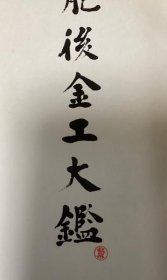 肥後金工大鑑